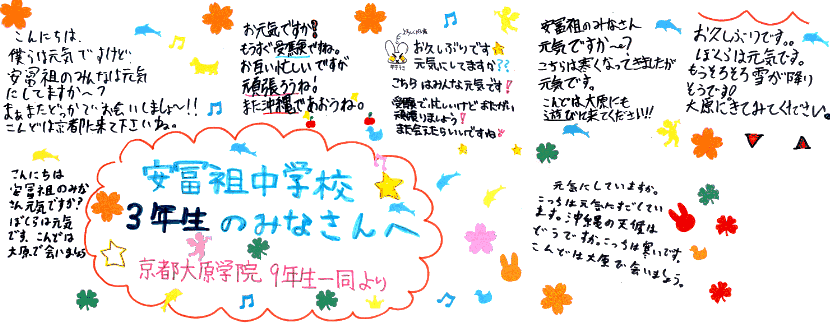 こんにちは、
僕らは元気ですけど
安冨祖のみんなは元気
にしてますか〜?
まぁまたどっかでお会いしましょ〜!!
こんどは京都に来て下さいね。
お元気ですか!
もうすぐ受験ですね。
お互い忙しいですが
頑張ろうね!
また沖縄であおうね。
お久しぶりです
元気にしてますか??
こちらはみんな元気です!
受験で忙しいけどおたがい
頑張りましょう!
また会えたらいいですね
安冨祖のみなさん
元気ですか〜?
こちらは寒くなってきましたが
元気です。
こんどは大原にも
遊びに来てください!!
お久しぶりです。
ぼくらは元気です。
もうそろそろ雪が降り
そうです!
大原にきてみてください。
こんにちは
安冨祖のみな
さん元気ですか?
ぼくらは元気
です、こんどは
大原で会いましょう
安冨祖中学校
3年生のみなさんへ
京都大原学院 9年生一同より
元気にしていますか。
こっちは元気にすごしてい
ます。沖縄の天候は
どうですか。こっちは寒いです。
こんどは大原で会いましょう。